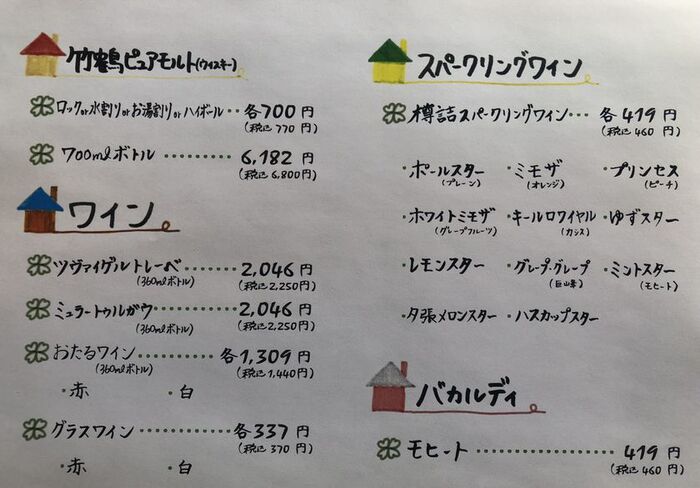 竹鶴ピュアモルト(ウイスキー)
ロックor水割りorお湯割りorハイボール・・・各700円
(税込770円)
700mlボトル・・・・・・・・・6,182円
(税込6,800円)
ワイン
ツヴァイゲルトレーベ・・・・・・2,046円
(360mlボトル)
(税込2,250円)
ミュラートゥルガウ・・・・・・・2,046円
(360mlボトル)
(税込2,250円)
おたるワイン・・・・・・・・各1,309円
(360mlボトル)
(税込1,440円)
・赤 ・白
グラスワイン・・・・・・・・・・各337円
(税込370円)
・赤 ・白
スパークリングワイン
樽詰スパークリングワイン・・・各419円
(税込460円)
・ポールスター ・ミモザ ・プリンセス
(プレーン) (オレンジ) (ピーチ)
・ホワイトミモザ ・キールロワイヤル ・ゆずスター
(グレープフルーツ) (カシス)
・レモンスター ・グレープ・グレープ ・ミントスター
(巨山峯) (モヒート)
・夕張メロンスター ・ハスカップスター
バカルディ
モヒート・・・・・・・・・・・・・・419円
(税込460円)